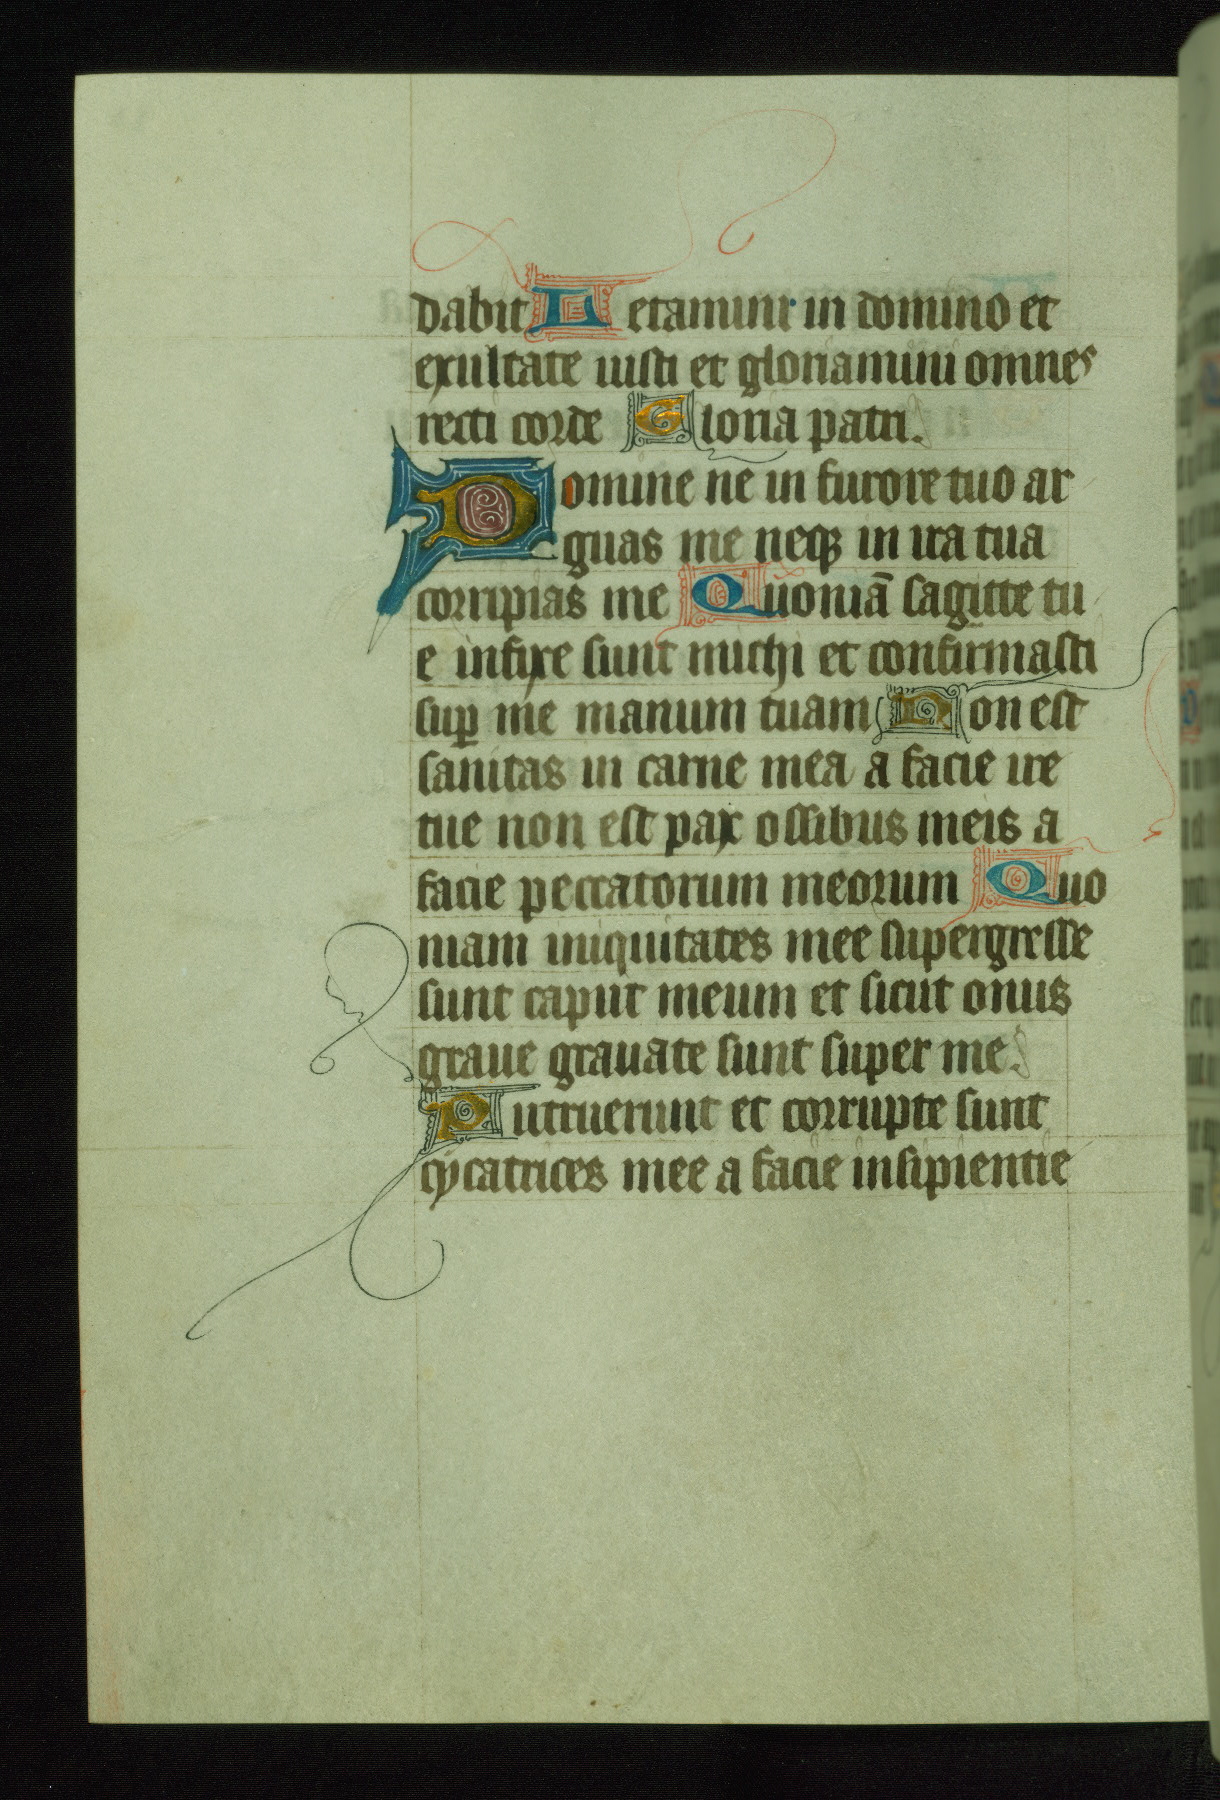 dabit Letamini in domino et
exultate iusti et gloriamini omnes
recti corde Gloria patri.
Domine ne in furore tuo ar
guas me neqꝫ in ira tua
corripias me Quoniā sagitte tu
e infixe sunt michi et confirmasti
suꝑ me manum tuam Non est
sanitas in carne mea a facie ire
tue non est pax ossibus meis a
facie peccatorum meorum Quo
niam iniquitates mee supergresse
sunt caput meum et sicut onus
graue grauate sunt super me.
Putruerunt et corrupte sunt
cycatrices mee a facie insipientie